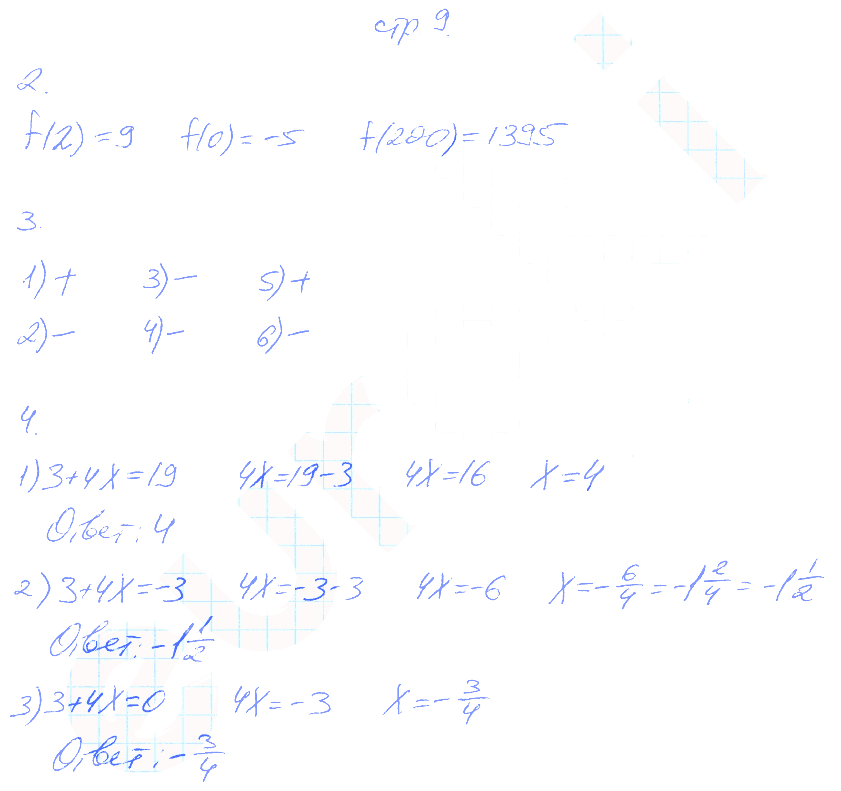 стр 9.
2.
f(2)=9 f(0)=-5 f(200)=1395
3.
1)+ 3)- 5)+
2)- 4)- 6)-
4.
1) 3+4x=19 4x=19-3 4x=16 x=4
Ответ: 4
2) 3+4x=-3 4x=-3-3 4x=-6 x=-6/4=-1 2/4=-1 1/2
Ответ: -1 1/2
3) 3+4x=0 4x=-3 x=-3/4
Ответ: -3/4